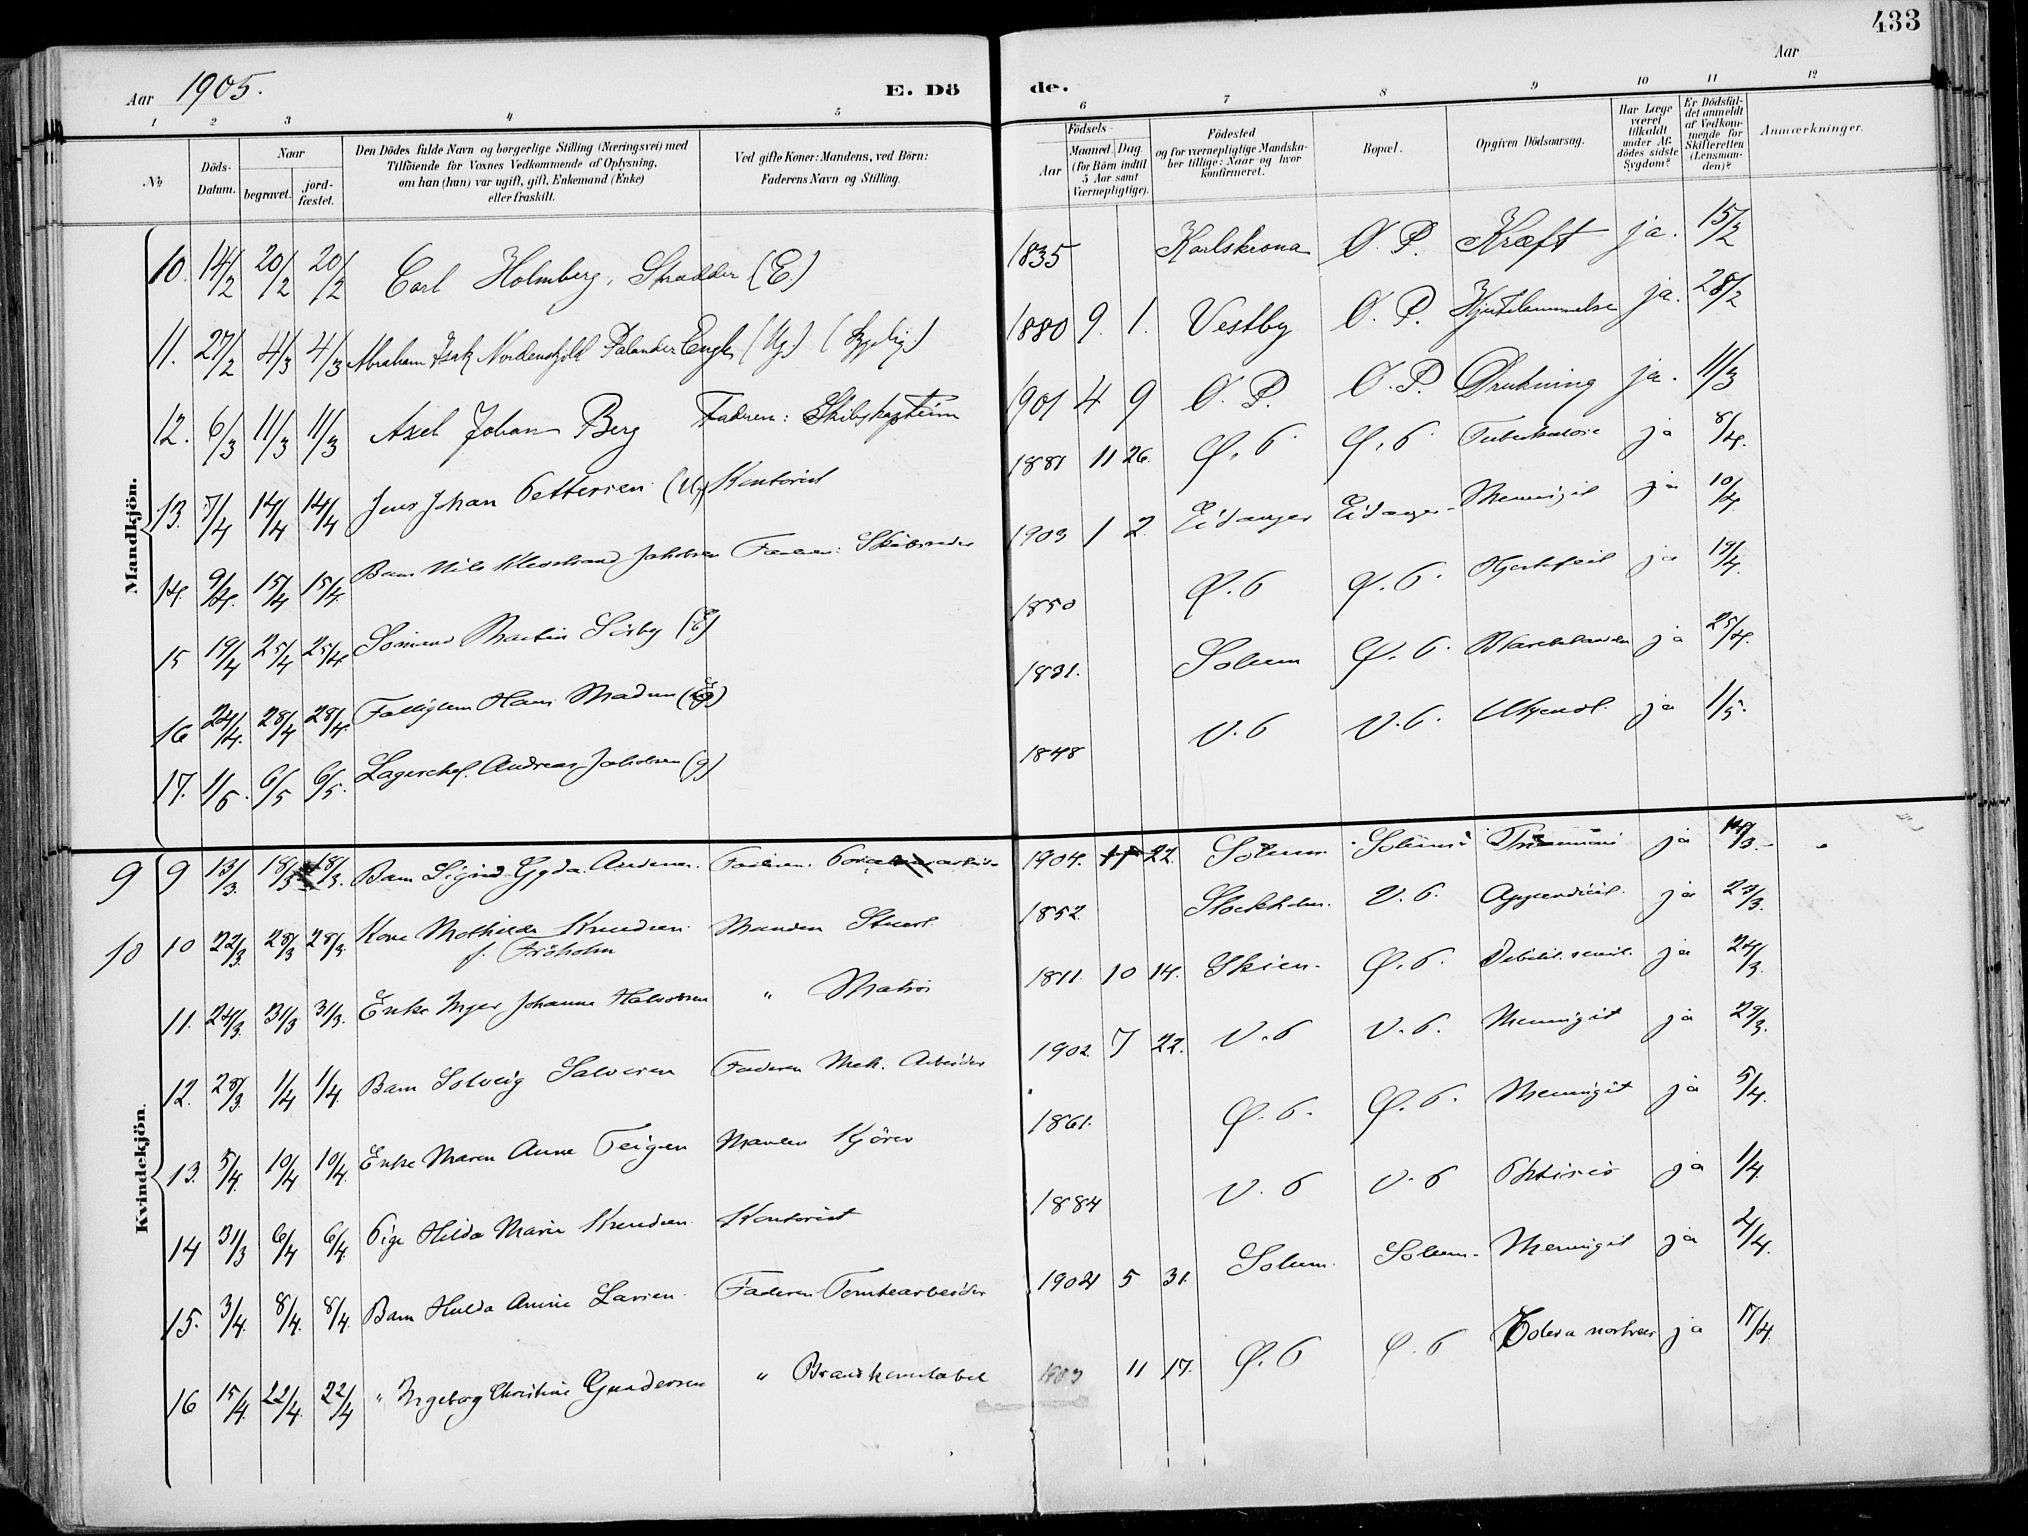 433
Aar 1905.
E. Döde.
Aar
1 2 3 4 5 6 7 8 9 10 11 12
No
Döds-Datum.
Naar
begravet.
jord-fæstet.
Den Dödes fulde Navn og borgerlige Stilling (Næringsvei) med
Tilföiende for Voxnes Vedkommende af Oplysning,
om han (hun) var ugift, gift, Enkemand (Enke)
eller fraskilt.
Ved gifte Koner: Mandens, ved Börn:
Faderens Navn og Stilling.
Födsels-
Aar
Maaned. Dag.
(for Börn indtil
5 Aar samt
Værnepligtige).
Födested
og for værnepligtige Mandskaber tillige: Naar og hvor
Konfirmeret.
Bopæl.
Opgiven Dödsaarsag.
Har Læge
været
tilkaldt
under Afdödes sidste
Sygdom?
Er Dödsfaldet anmeldt
af Vedkommende for
Skifteretten
(Lensmanden)?
Anmærkninger.
Mandkjön.
10. 14/2 20/2 20/2 Carl Holmberg, (E) 1835 Karlskrona Ø. P. Kræft ja. 15/2
11. 27/2 4/3 4/3 Abraham Isak Nordenskjöld Palander Engh (Ug.) 1880 9. 1. Vestby Ø. P. Hjertelammelse ja. 28/2
12. 6/3 11/3 11/3 Axel Johan Berg Faderen: Skibskaptein 1901 4 9 Ø. P. Ø. P. Drukning ja. 11/3
13. 7/4 14/4 14/4 Jens Johan Pettersen (Ug) Kontorist 1881 11 26. Ø. P. Ø. P. Tuberkulose ja 8/4.
14. 9/4. 15/4 15/4. Barn Nils Jakobsen Faderen: Skibsreder 1903 1 2. Eidanger Eidanger Meningit ja 10/4
15 19/4 25/4 25/4 Sömand Martin (E) 1850 Ø. P Ø. P. Hjertefeil ja 19/4.
16 24/4. 28/4 28/4. Fattiglem Hans Madsen 1821. Solum Ø. P. ja 25/4.
17. 1/5. 6/5 6/5. Lagerchef. Andreas Jakobsen (g) 1848 V. P V. P. Ukjendt. ja 1/5.
Kvindekjön.
9 9 13/3. 18/3 18/3. Barn Sigrid Gyda Andersen. Faderen 1904. 11 22. Solum Solum ja
10 10 22/3. 28/3 28/3. Kone Mathilde Knudsen Manden Stuert. 1852. Stockholm. V. P. Appendicit. ja 23/3.
f. Fröholm
11. 24/3. 31/3 31/3. Enke Inger Johanne Halvorsen " Matros 1811. 10 14. Skien. Ø. P. Debilit. senil. ja 24/3.
12. 28/3. 1/4 1/4. Barn Solveig Salvesen Faderen Mek. Arbeider 1902. 7 22. V. P V. P. Meningit ja 29/3.
13. 5/4. 10/4 10/4. Enke Maren Anne Teigen Manden Kjörer 1861. Ø. P. Ø. P. Meningit ja 5/4.
14 31/3 6/4 6/4. Pige Hilda Marie Knudsen. Kontorist 1884 V. P V. P Phtisis ja 1/4.
15. 3/4. 8/4. 8/4. Barn Hulda Amine Larsen. Faderen Tomtearbeider 5 31. Solum. Solum. Meningit ja
16 15/4. 22/4. 22/4 " Ingeborg Christine Gundersen " Brandkonstabel 1903 11 17. Ø. P Ø. P ja 17/4.